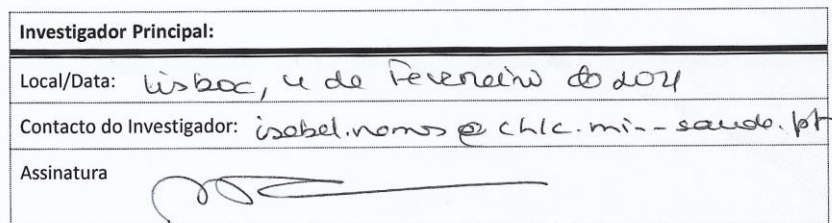 Investigador Principal:
Local/Data: Lisboa, 4 de Fevereiro de 2021
Contacto do Investigador: @chlc.min-saude.pt
Assinatura